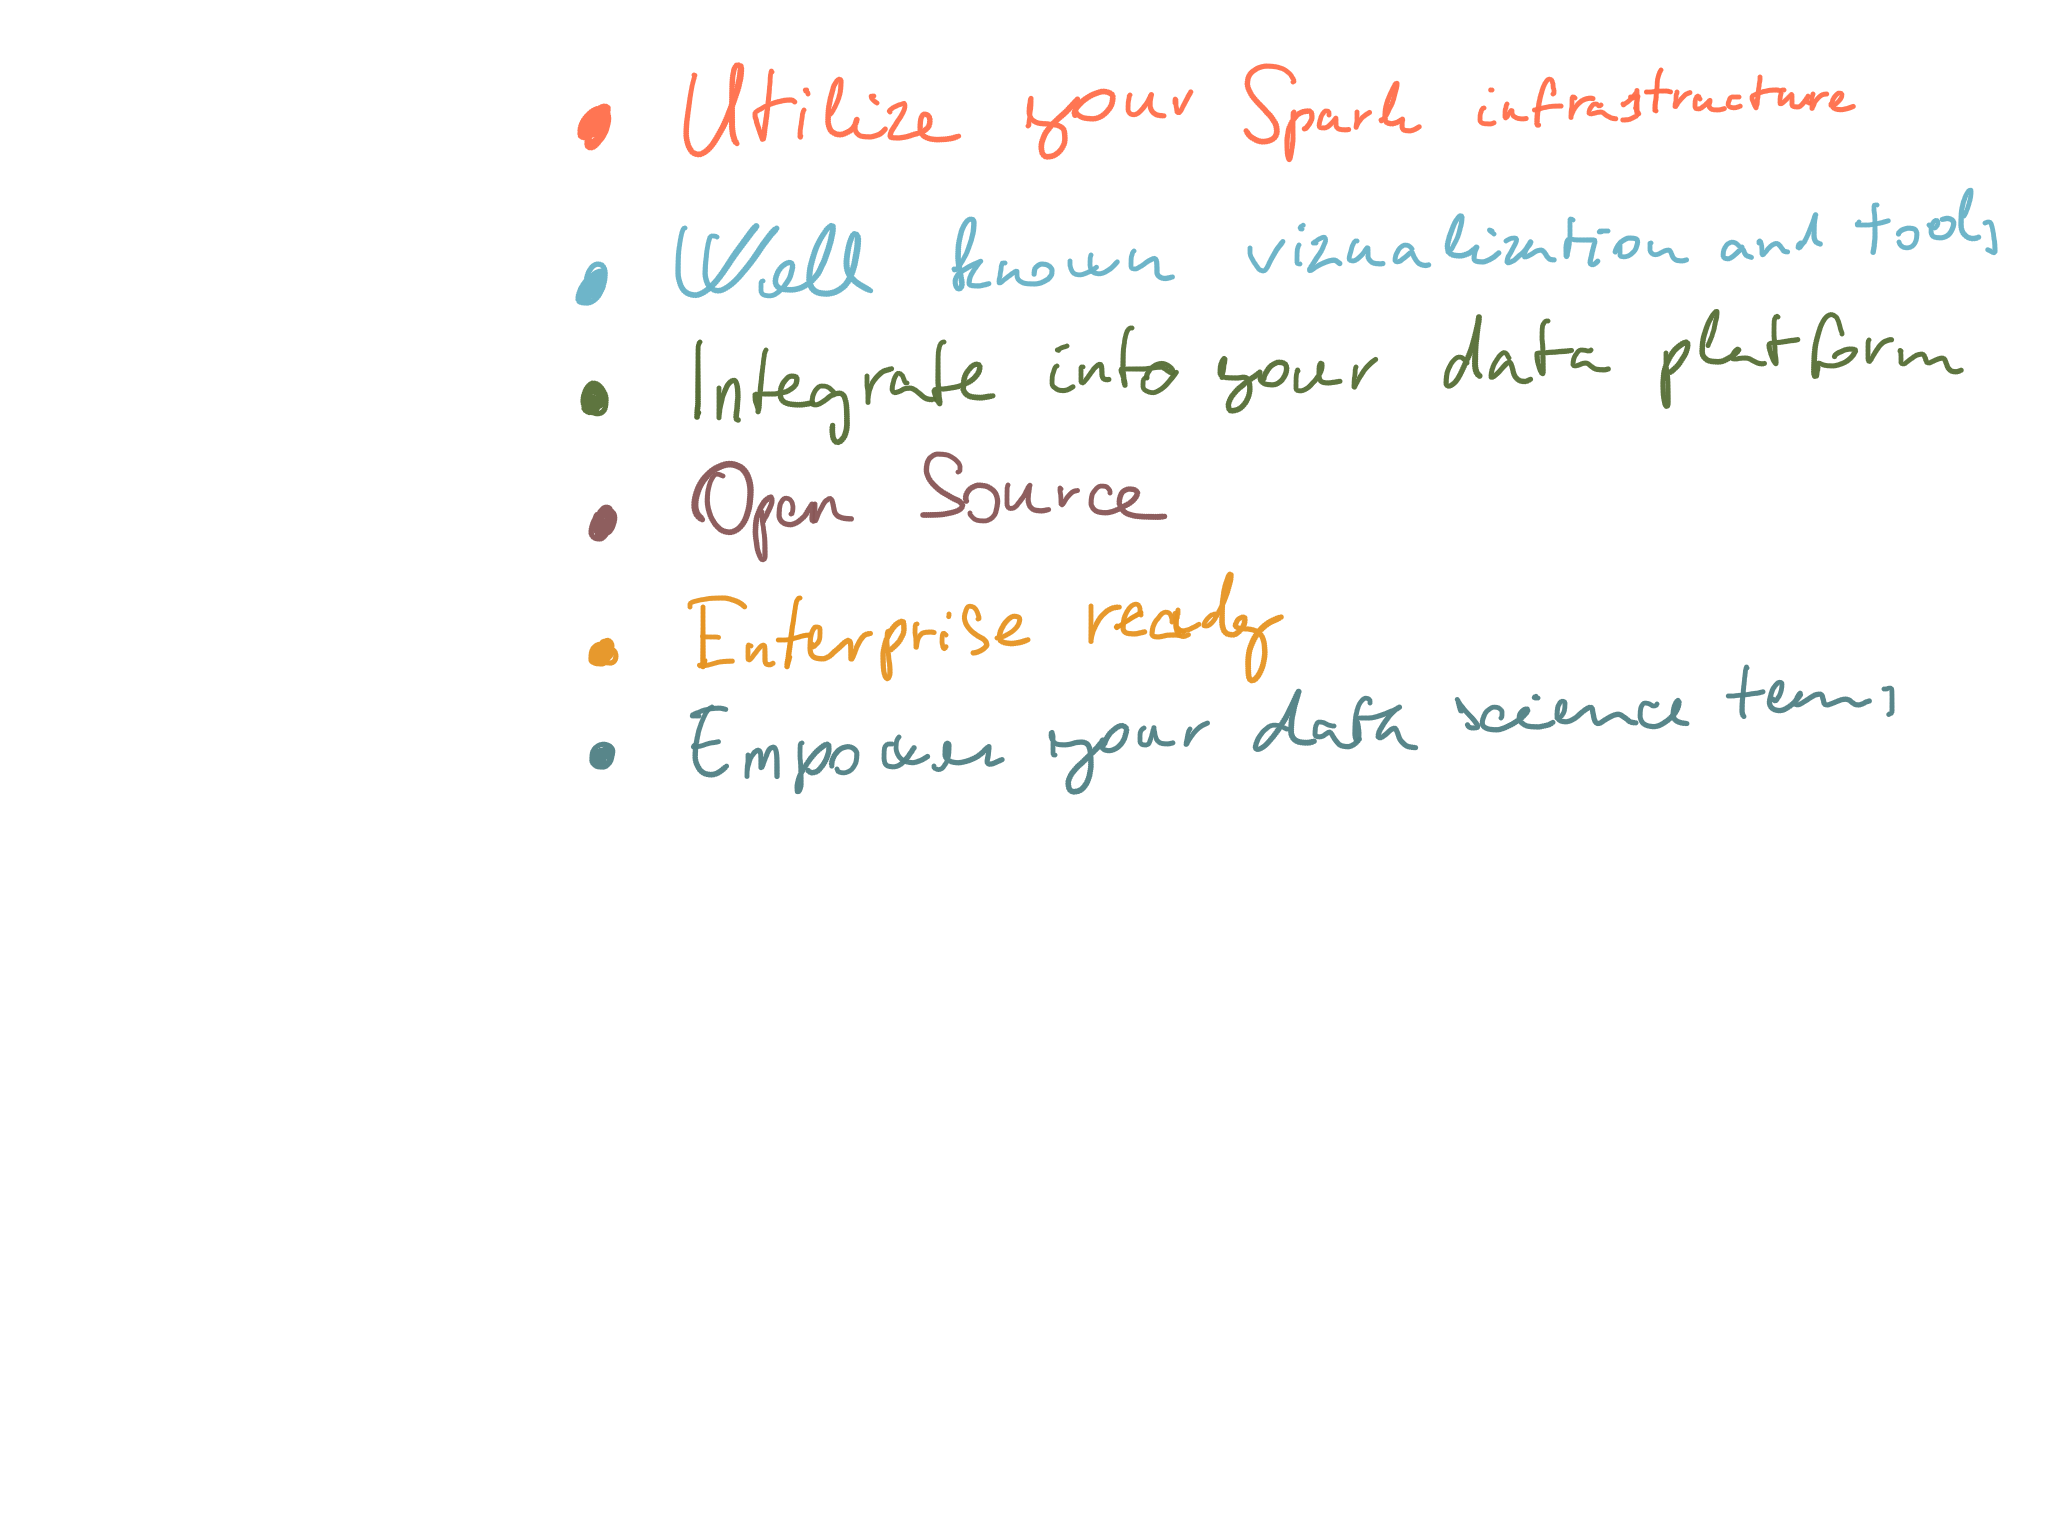 • Utilize your Spark infrastructure
• Well known vizualization and tools
• Integrate into your data platform
• Open Source
• Enterprise ready
• Empower your data science tems